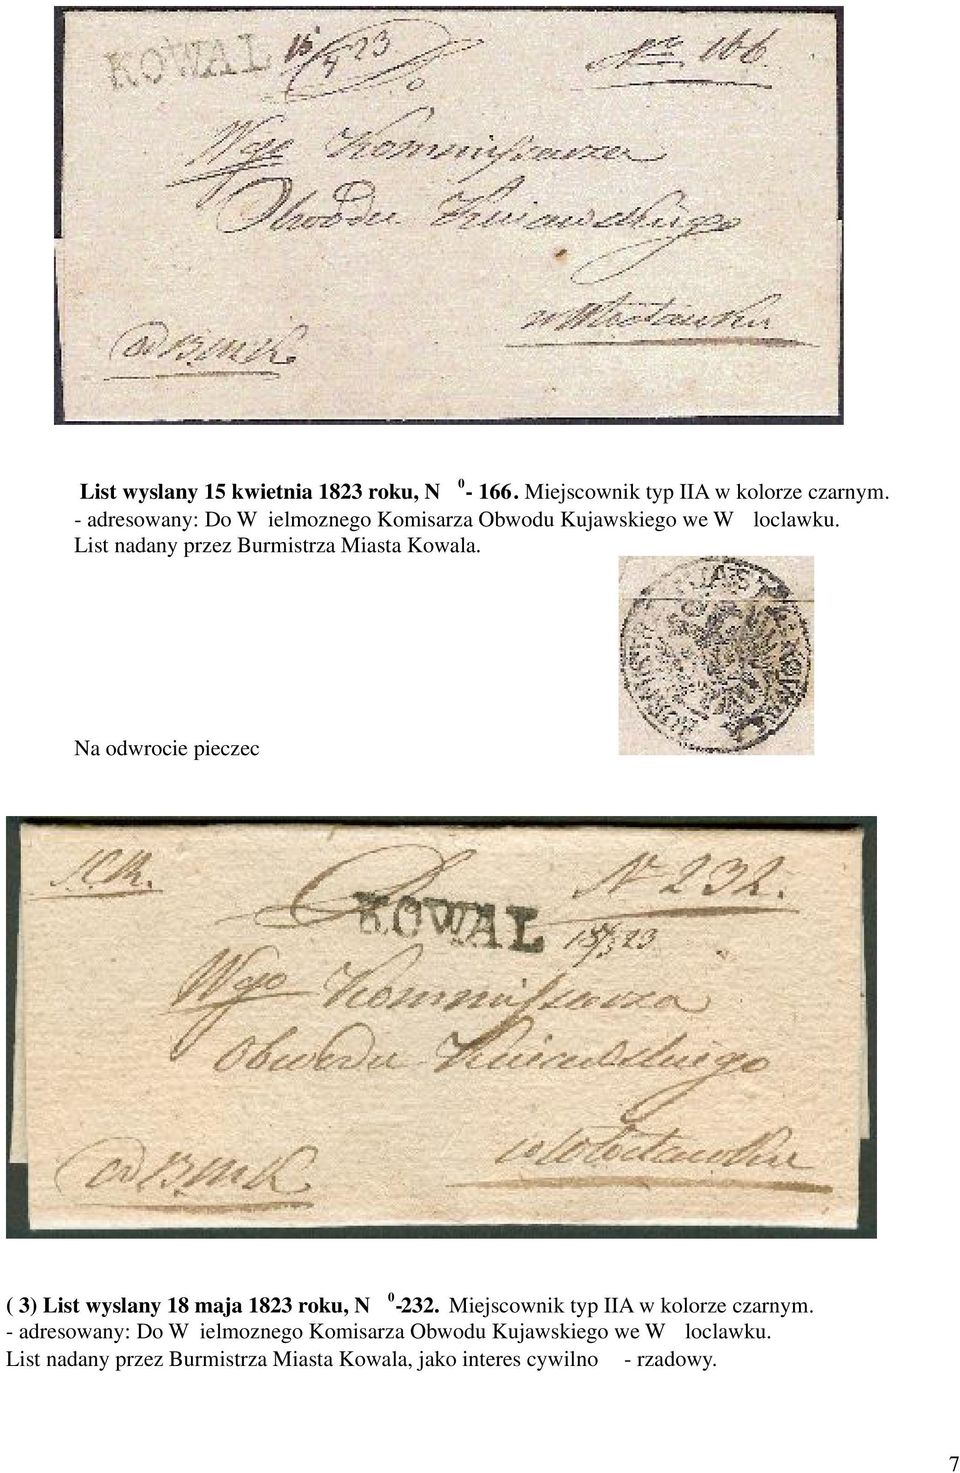 KOWAL 15/4 23 No 166.
Wgo Kommissarza
Obwodu Kuiawskiego
w Włocławku
od B.M.K.
List wyslany 15 kwietnia 1823 roku, N 0- 166. Miejscownik typ IIA w kolorze czarnym.
- adresowany: Do W ielmoznego Komisarza Obwodu Kujawskiego we W loclawku.
List nadany przez Burmistrza Miasta Kowala.
Na odwrocie pieczec
N 232.
KOWAL
Wgo Kommissarza
Obwodu Kuiawskiego
w Włocławku
od B.M.K.
( 3) List wyslany 18 maja 1823 roku, N 0-232. Miejscownik typ IIA w kolorze czarnym.
- adresowany: Do W ielmoznego Komisarza Obwodu Kujawskiego we W loclawku.
List nadany przez Burmistrza Miasta Kowala, jako interes cywilno - rzadowy.
7